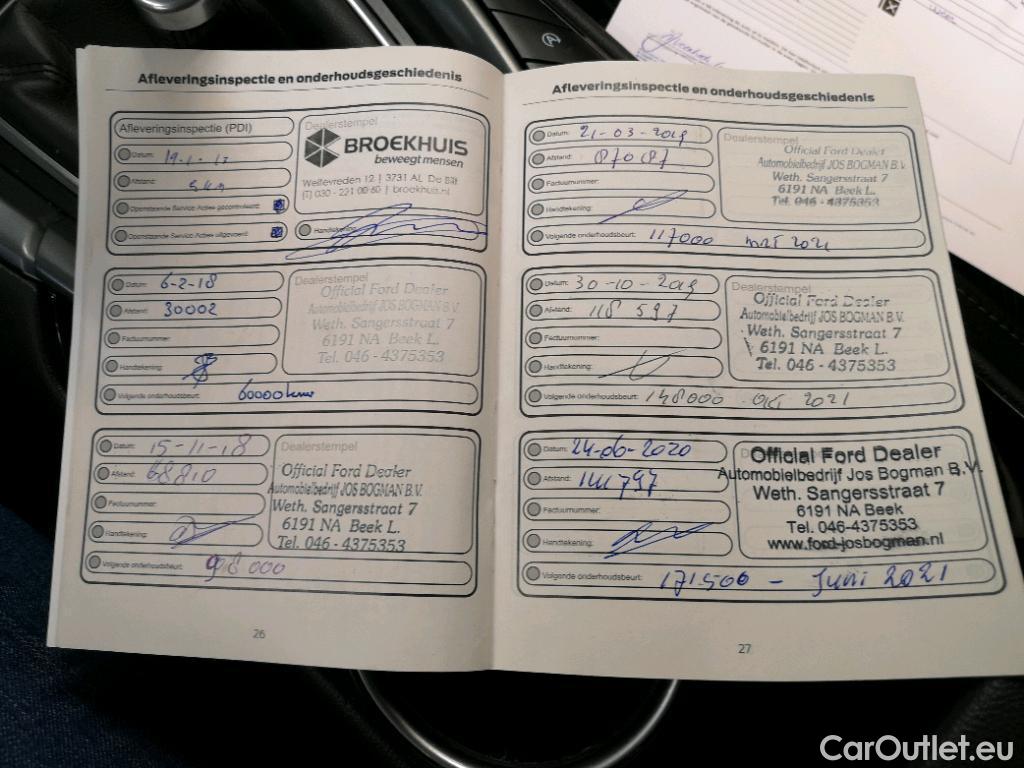 Afleveringsinspectie en onderhoudsgeschiedenis
Afleveringsinspectie (PDI)
Datum: 19-1-17
Afstand: 5 km
Openstaande Service Acties gecontroleerd:
Openstaande Service Acties uitgevoerd:
Dealerstempel
BROEKHUIS
beweegt mensen
Weltevreden 12 | 3731 AL De Bilt
(T) 030 - 221 00 60 | broekhuis.nl
Handtekening:
Datum: 6-2-18
Afstand: 30002
Factuurnummer:
Handtekening:
Volgende onderhoudsbeurt: 60000 km
Dealerstempel
Official Ford Dealer
Automobielbedrijf JOS BOGMAN B.V.
Weth. Sangersstraat 7
6191 NA Beek L.
Tel. 046 - 4375353
Datum: 15-11-18
Afstand: 68810
Factuurnummer:
Handtekening:
Volgende onderhoudsbeurt: 98 000
Dealerstempel
Official Ford Dealer
Automobielbedrijf JOS BOGMAN B.V.
Weth. Sangersstraat 7
6191 NA Beek L.
Tel. 046 - 4375353
26
Afleveringsinspectie en onderhoudsgeschiedenis
Datum: 21-03-2019
Afstand: 87087
Factuurnummer:
Handtekening:
Volgende onderhoudsbeurt: 117000 mrt 2021
Dealerstempel
Official Ford Dealer
Automobielbedrijf JOS BOGMAN B.V.
Weth. Sangersstraat 7
6191 NA Beek L.
Tel. 046 - 4375353
Datum: 30-10-2019
Afstand: 118 597
Factuurnummer:
Handtekening:
Volgende onderhoudsbeurt: 148000 okt 2021
Dealerstempel
Official Ford Dealer
Automobielbedrijf JOS BOGMAN B.V.
Weth. Sangersstraat 7
6191 NA Beek L.
Tel. 046 - 4375353
Datum: 24-06-2020
Afstand: 141797
Factuurnummer:
Handtekening:
Volgende onderhoudsbeurt: 171.500 - Juni 2021
Official Ford Dealer
Automobielbedrijf Jos Bogman B.V.
Weth. Sangersstraat 7
6191 NA Beek
Tel. 046-4375353
www.ford-josbogman.nl
27
CarOutlet.eu